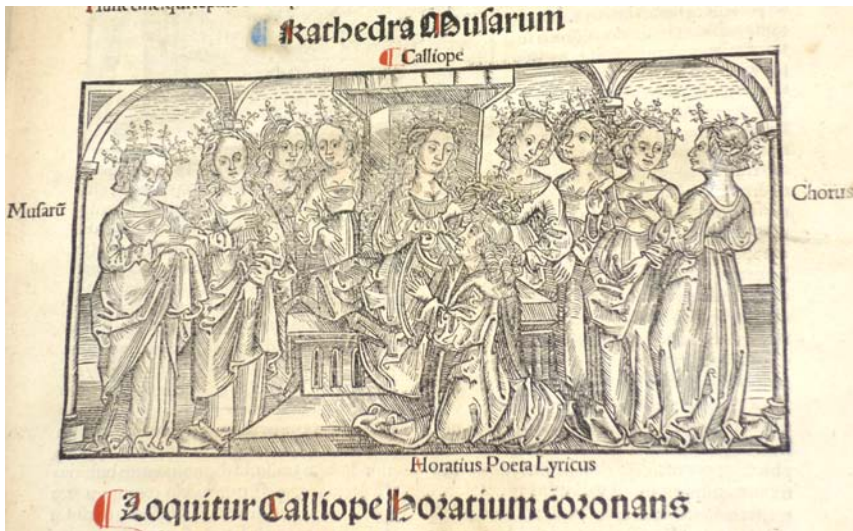 Kathedra Musarum
Calliope
Musarū
Chorus
Horatius Poeta Lyricus
Loquitur Calliope Horatium coronans